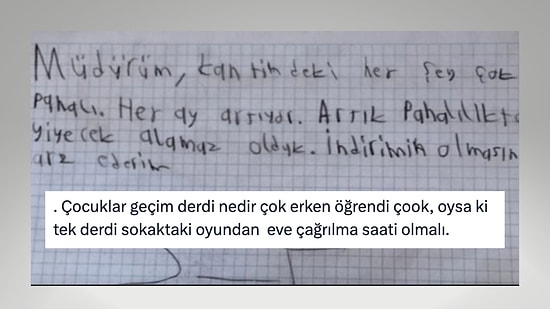 Müdürüm, kantindeki her şey çok
pahalı. Her ay artıyor. Artık Pahalılıkta
yiyecek alamaz olduk. İndirimin olmasın
arz ederim
. Çocuklar geçim derdi nedir çok erken öğrendi çook, oysa ki
tek derdi sokaktaki oyundan eve çağrılma saati olmalı.